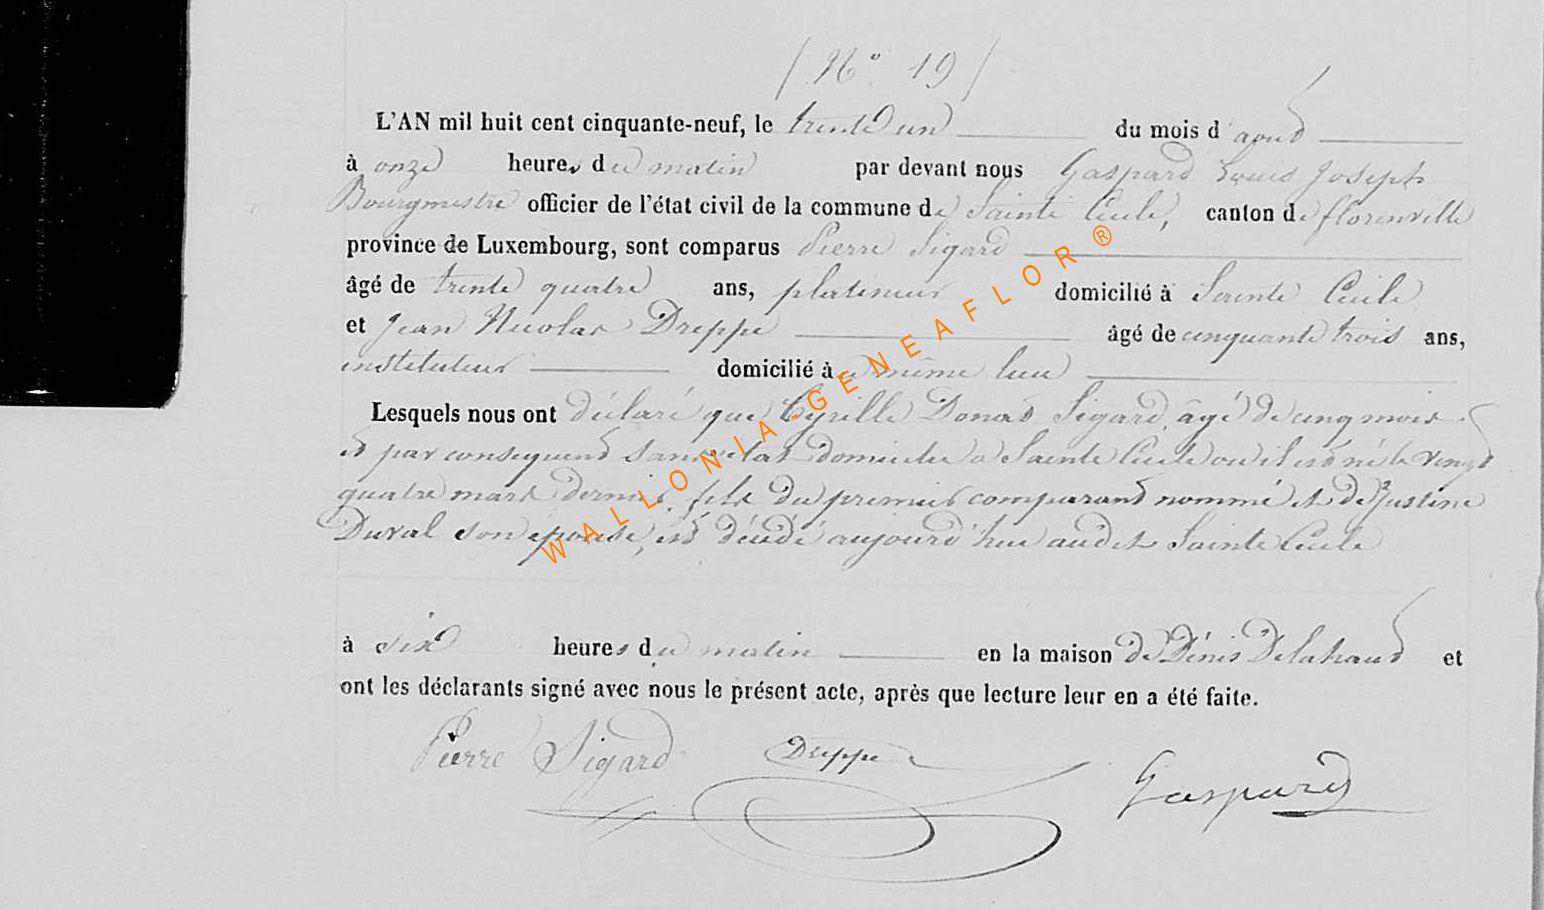 ( N° 19 )
L'AN mil huit cent cinquante-neuf, le trente un du mois d'aout
à onze heures du matin par devant nous Gaspard Louis Joseph
Bourgmestre officier de l'état civil de la commune de Sainte Cécile, canton de florenville
province de Luxembourg, sont comparus Pierre Sigard
âgé de trente quatre ans, platineur domicilié à Sainte Cécile
et Jean Nicolas Dreppe âgé de cinquante trois ans,
instituteur domicilié à même lieu
Lesquels nous ont déclaré que Cyrille Donat Sigard, âgé de cinq mois
et par conséquent sans état domicilié à Sainte Cécile où il est né le vingt
quatre mars dernier, fils du premier comparant nommé et de Justine
Duval son épouse, est décédé aujourd'hui audit Sainte Cécile
à six heures du matin en la maison de Dénis Delahaut et
ont les déclarants signé avec nous le présent acte, après que lecture leur en a été faite.
Pierre Sigard Dreppe Gaspard
WALLONIA-GENEAFLOR ®